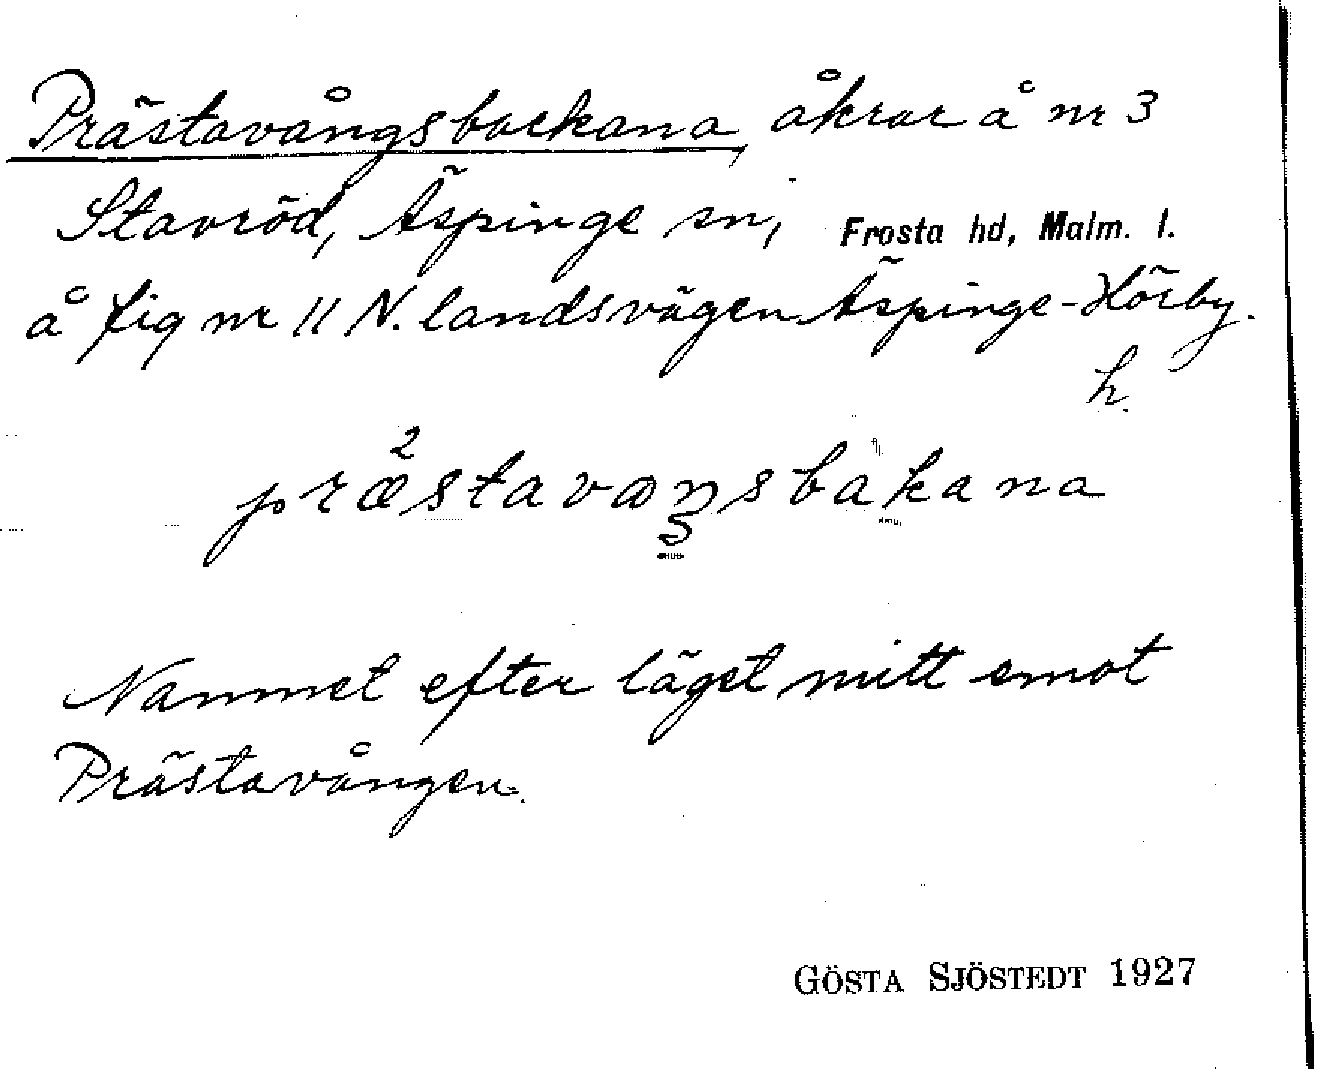 Prästavångsbackana, åkrar å nr 3
Stavröd, Äspinge sn, Frosta hd, Malm. l.
å fig nr 11 N. landsvägen Äspinge-Hörby.
h.
præ²stavaŋsbakana
Namnet efter läget mitt emot
Prästavången.
GÖSTA SJÖSTEDT 1927